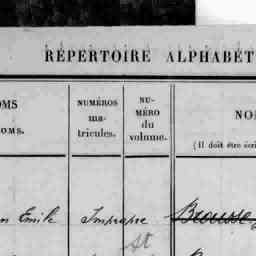 RÉPERTOIRE ALPHABÉT
OMS
OMS.
NUMÉROS
ma-
tricules.
NU-
MÉRO
du
volume.
NO
(Il doit être écri
n Emile Impropre Brousse